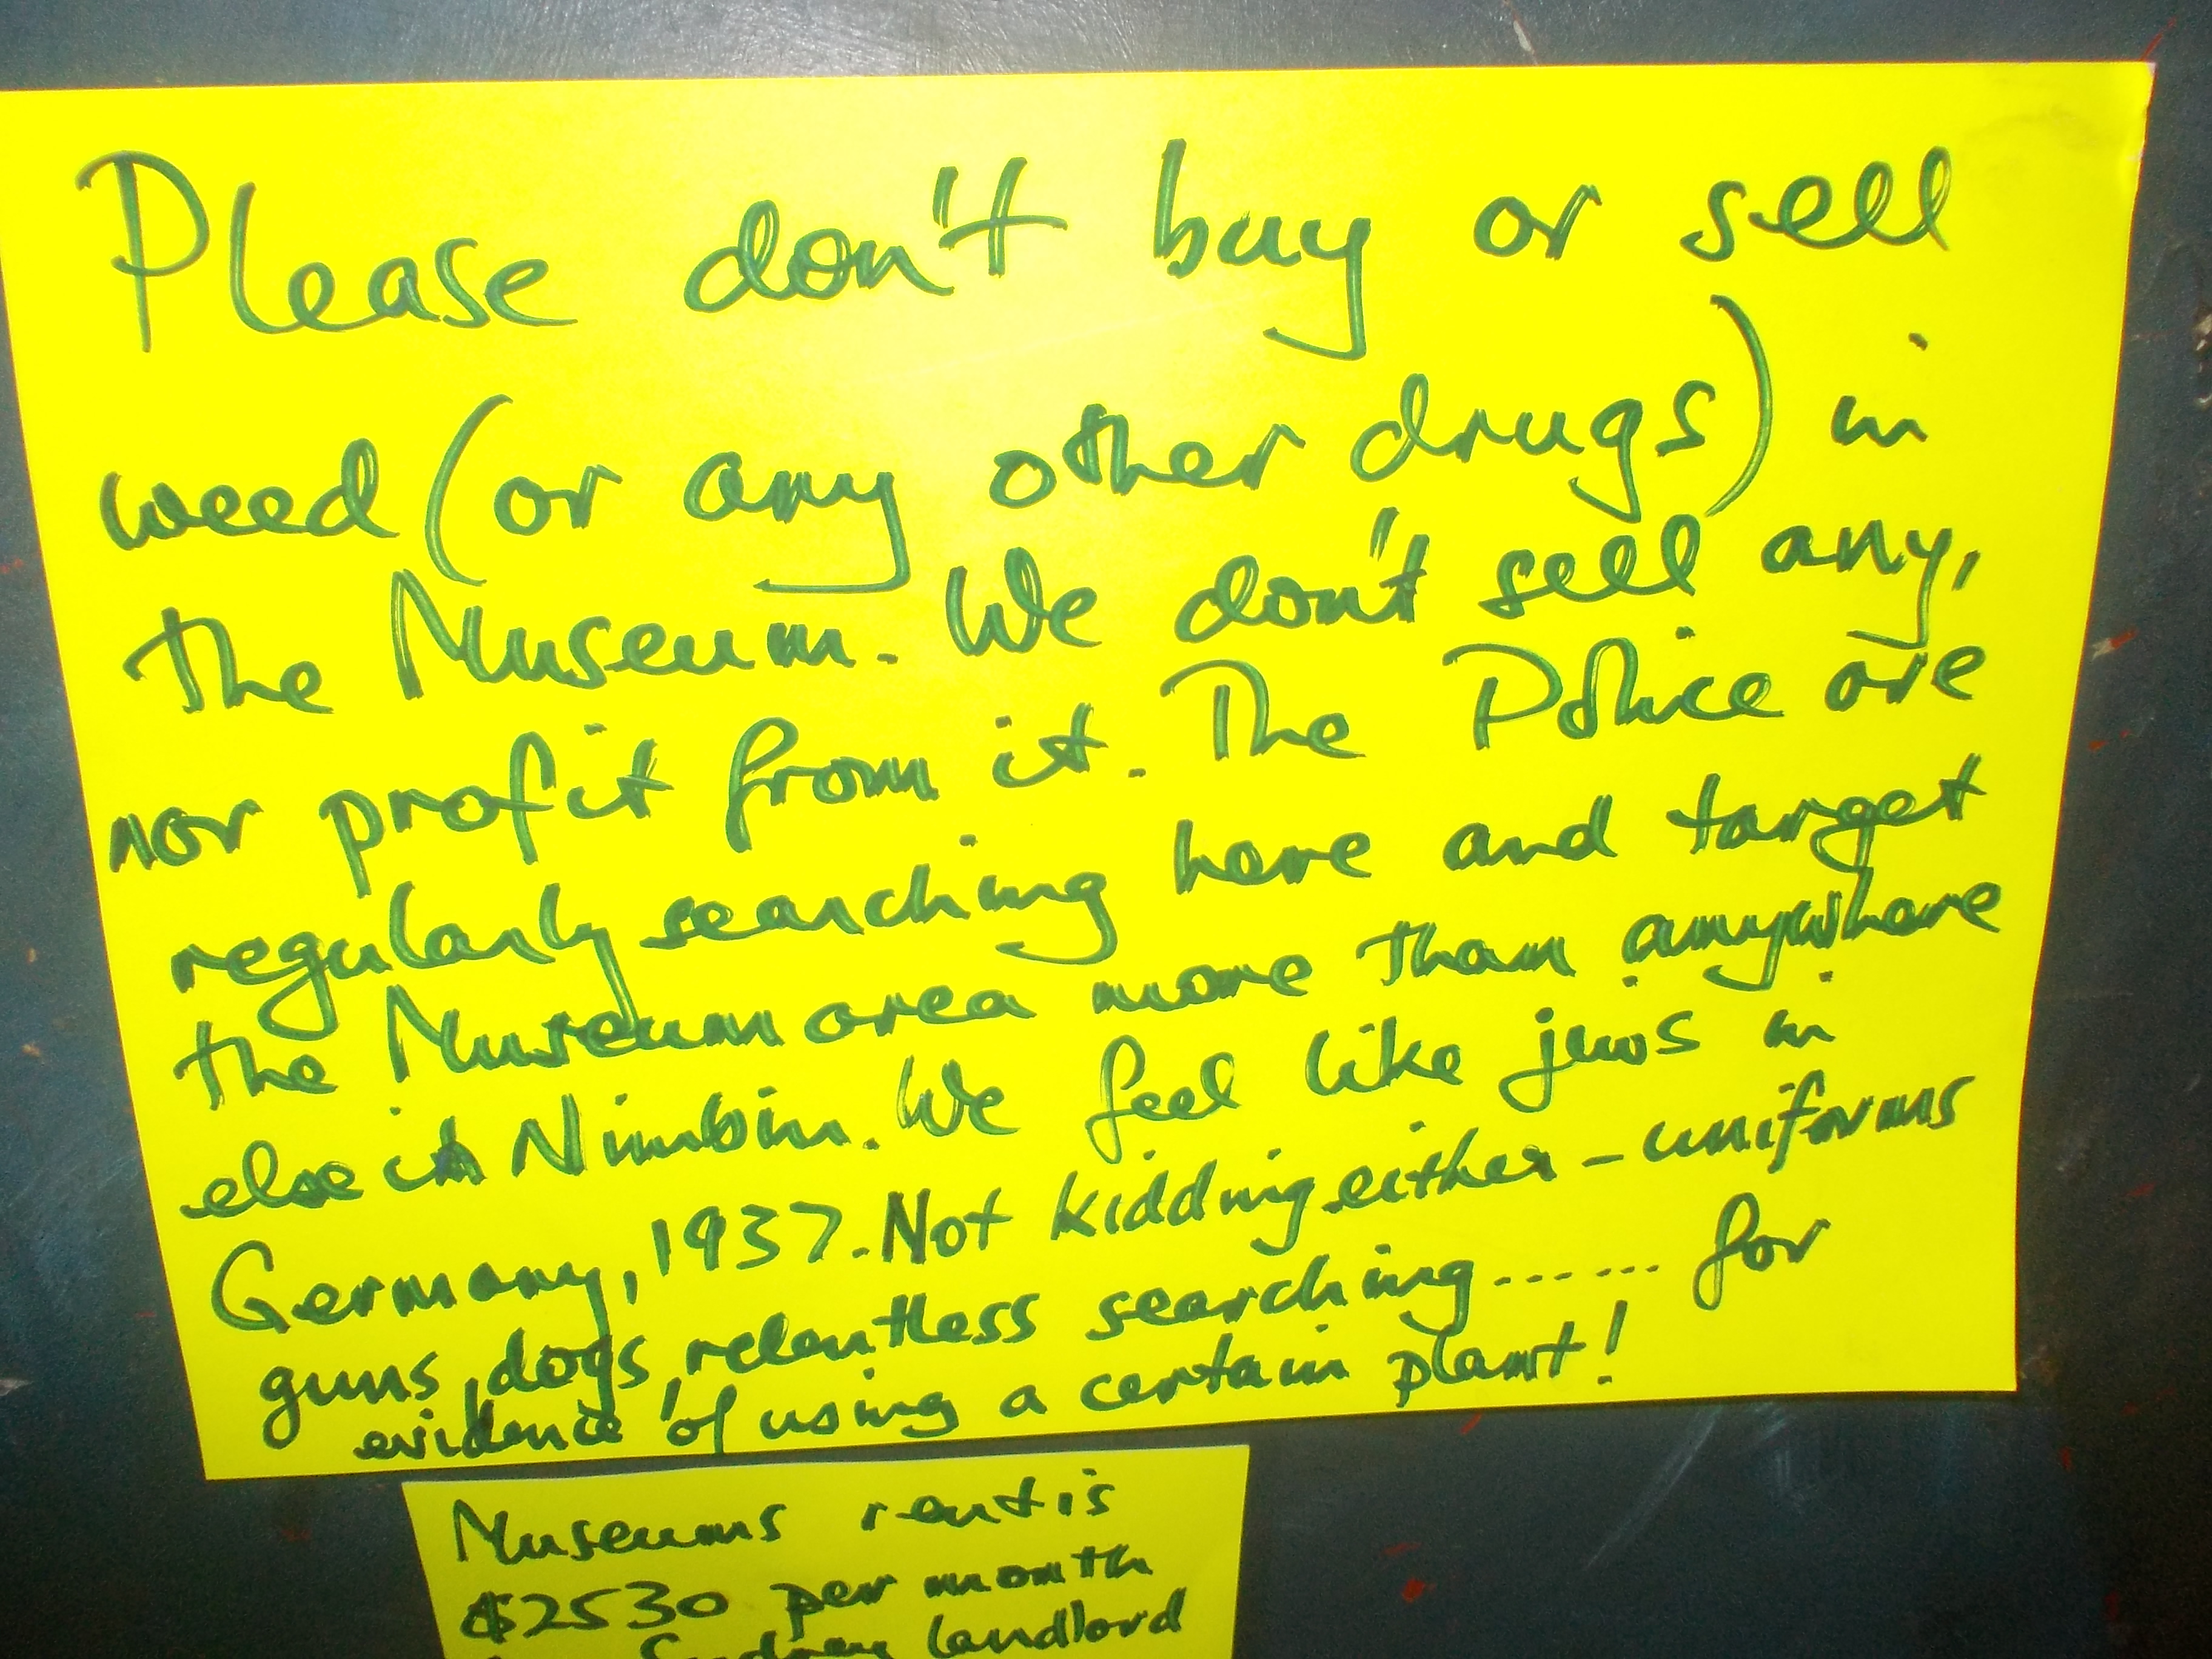 Please don't buy or sell
weed (or any other drugs) in
the Museum. We don't sell any,
nor profit from it. The Police are
regularly searching here and target
the Museum area more than anywhere
else in Nimbin. We feel like jews in
Germany, 1937. Not kidding either - uniforms
guns, dogs, relentless searching....... for
evidence of using a certain plant!
Museums rent is
$2530 per month
Sydney landlord